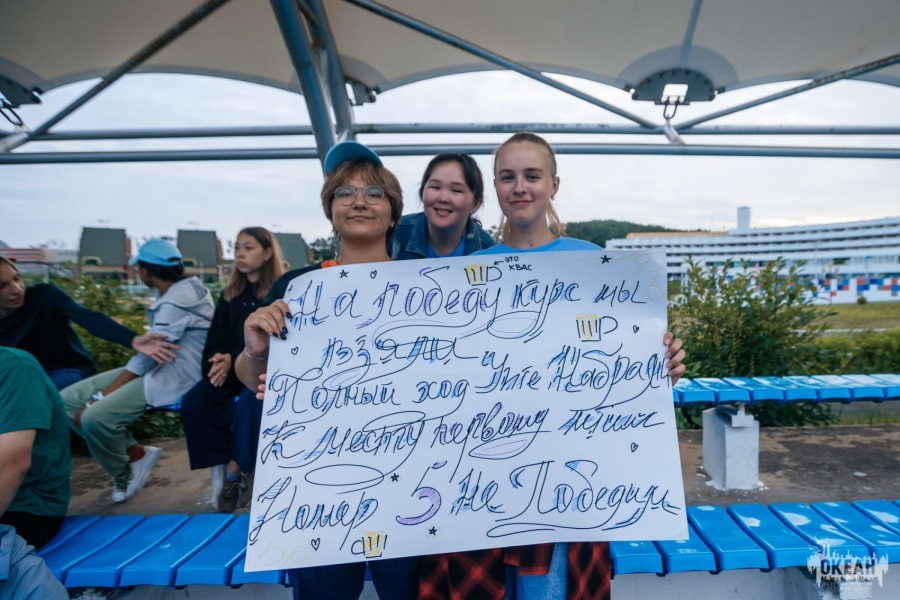 это
квас
На победу курс мы
взяли и
Полный ход уже Набрали
К месту первому
Номер 5 Не Победим
ОКЕАН